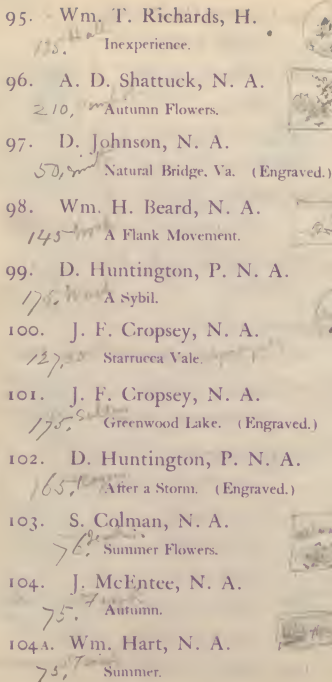 95. Wm. T. Richards, H.
Inexperience.
96. A. D. Shattuck, N. A.
210, Autumn Flowers.
97. D. Johnson, N. A.
50, Natural Bridge, Va. (Engraved.)
98. Wm. H. Beard, N. A.
145 A Flank Movement.
99. D. Huntington, P. N. A.
175. A Sybil.
100. J. F. Cropsey, N. A.
127, Starrucca Vale.
101. J. F. Cropsey, N. A.
175. Greenwood Lake. (Engraved.)
102. D. Huntington, P. N. A.
165. After a Storm. (Engraved.)
103. S. Colman, N. A.
76. Summer Flowers.
104. J. McEntee, N. A.
75. Autumn.
104A. Wm. Hart, N. A.
75, Summer.